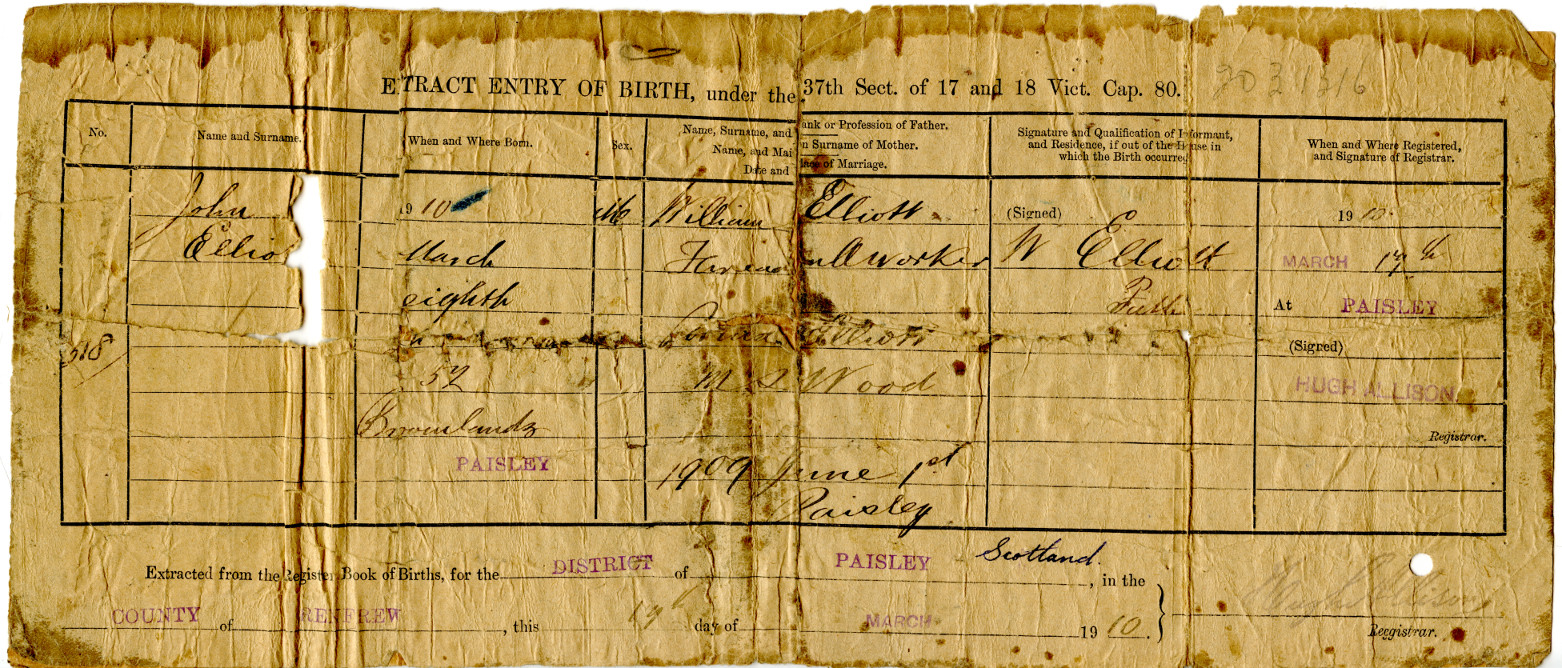 9031316
EXTRACT ENTRY OF BIRTH, under the 37th Sect. of 17 and 18 Vict. Cap. 80.
No.
Name and Surname.
When and Where Born.
Sex.
Name, Surname, and ank or Profession of Father.
Name, and Mai n Surname of Mother.
Date and lace of Marriage.
Signature and Qualification of Informant,
and Residence, if out of the House in
which the Birth occurred
When and Where Registered,
and Signature of Registrar.
518
John
Elliot
1910
March
eighth
52
Brownlands
PAISLEY
M
William Elliott
worker
Elliott
M S Wood
1909 June 1st
Paisley
(Signed)
W Elliott
Fath
1910
MARCH 17th
At PAISLEY
(Signed)
HUGH ALLISON
Registrar.
Extracted from the Register Book of Births, for the DISTRICT of PAISLEY Scotland. , in the
COUNTY of RENFREW , this day of MARCH 1910.
Hugh Allison
Registrar.